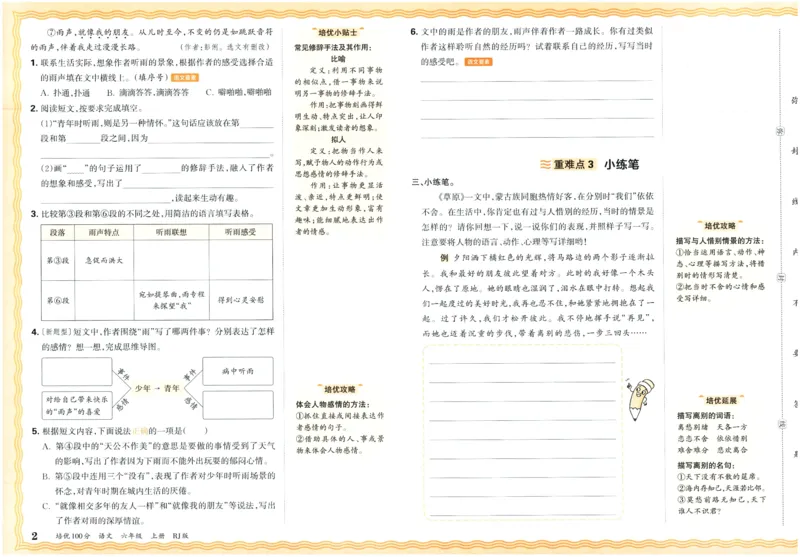 ⑦雨声,就像我的朋友。从儿时至今,不变的仍是如跳跃音符
的雨声,伴着我走过漫漫长路。
(作者:彭刚。选文有删改)
1. 联系生活实际,想象作者听雨的景象,根据作者的感受选择合适
的雨声填在文中横线上。(填序号) 语文要素
A. 扑通,扑通 B. 滴滴答答,滴滴答答 C. 噼啪啪,噼啪啪
2. 阅读短文,按要求完成填空。
(1)“青年时听雨,则是另一种情怀。”这句话应该放在第
段和第 段之间,因为
。
(2)画“ ”的句子运用了 的修辞手法,融入了作者
的想象和感受,写出了
,读起来生动有趣。
3. 比较第③段和第⑥段的不同之处,用简洁的语言填写表格。
段落 雨声特点 听雨联想 听雨感受
第③段 急促而洪大
第⑥段 宛如提琴曲,雨专程来探望“我” 得到心灵安慰
4. [新题型] 短文中,作者围绕“雨”写了哪两件事? 分别表达了怎样
的感情? 想一想,完成思维导图。
事件 事件 病中听雨
少年 → 青年
对给自己带来快乐
的“雨声”的喜爱
感情 感情
5. 根据短文内容,下面说法正确的一项是( )
A. 第④段中的“天公不作美”的意思是要做的事情受到了天气
的影响,写出了作者因为下雨而不能外出玩耍的郁闷心情。
B. 第⑤段中连用三个“没有”,表现了作者对少年时听雨场景的
怀念,对青年时期在城内生活的厌倦。
C. “就像相交多年的友人一样”和“就像我的朋友”等说法,写出
了作者对雨的深厚情谊。
2 培优100分 语文 六年级 上册 RJ版
培优小贴士
常见修辞手法及其作用:
比喻
定义:利用不同事物
的相似点,借一事物来说
明另一事物的修辞手法。
作用:把事物刻画得鲜
明生动、特点突出,让人印
象深刻;激发读者的想象。
拟人
定义:把物当作人来
写,赋予物人的动作行为或
思想感情的修辞手法。
作用:让事物更显活
泼、亲近,特点更鲜明;使
文章更加生动形象、富有
趣味;能细腻地表达出作
者的情感。
培优攻略
体会人物感情的方法:
①抓住直接或间接表达作
者感情的句子。
②借助具体的人、事或景
物来体会人物感情。
6. 文中的雨是作者的朋友,雨声伴着作者一路成长。你有过类似
作者这样聆听自然的经历吗? 试着联系自己的经历,写写当时
的感受吧。 语文要素
重难点3 小练笔
三、小练笔。
《草原》一文中,蒙古族同胞热情好客,在分别时“我们”依依
不舍。在生活中,你肯定也有过与人惜别的经历,当时的情景是
怎样的? 请你回想一下,说一说你们的表现,并照样子写一写。
注意要将人物的语言、动作、心理等写详细哟!
例 夕阳洒下橘红色的光辉,将马路边的两个影子逐渐拉
长。我和最好的朋友彼此望着对方。此时的我好像一个木头
人,愣在了原地。她的眼睛也湿润了,泪水在眼中打转。想起我
们一起度过的美好时光,我再也忍不住,和她紧紧地拥抱在了一
起。过了许久,我们才松开彼此。我不停地挥手说“再见”,
而她也迈着沉重的步伐,带着离别的悲伤,一步三回头……
培优攻略
描写与人惜别情景的方法:
①恰当运用语言、动作、神
态、心理等描写方法,将惜
别时的情形写清楚。
②把当时不舍的心情和感
受写详细。
培优延展
描写离别的词语:
离愁别绪 天各一方
恋恋不舍 依依惜别
难舍难分 悲欢离合
描写离别的名句:
①天下没有不散的筵席。
②海内存知己,天涯若比邻。
③莫愁前路无知己,天下
谁人不识君?